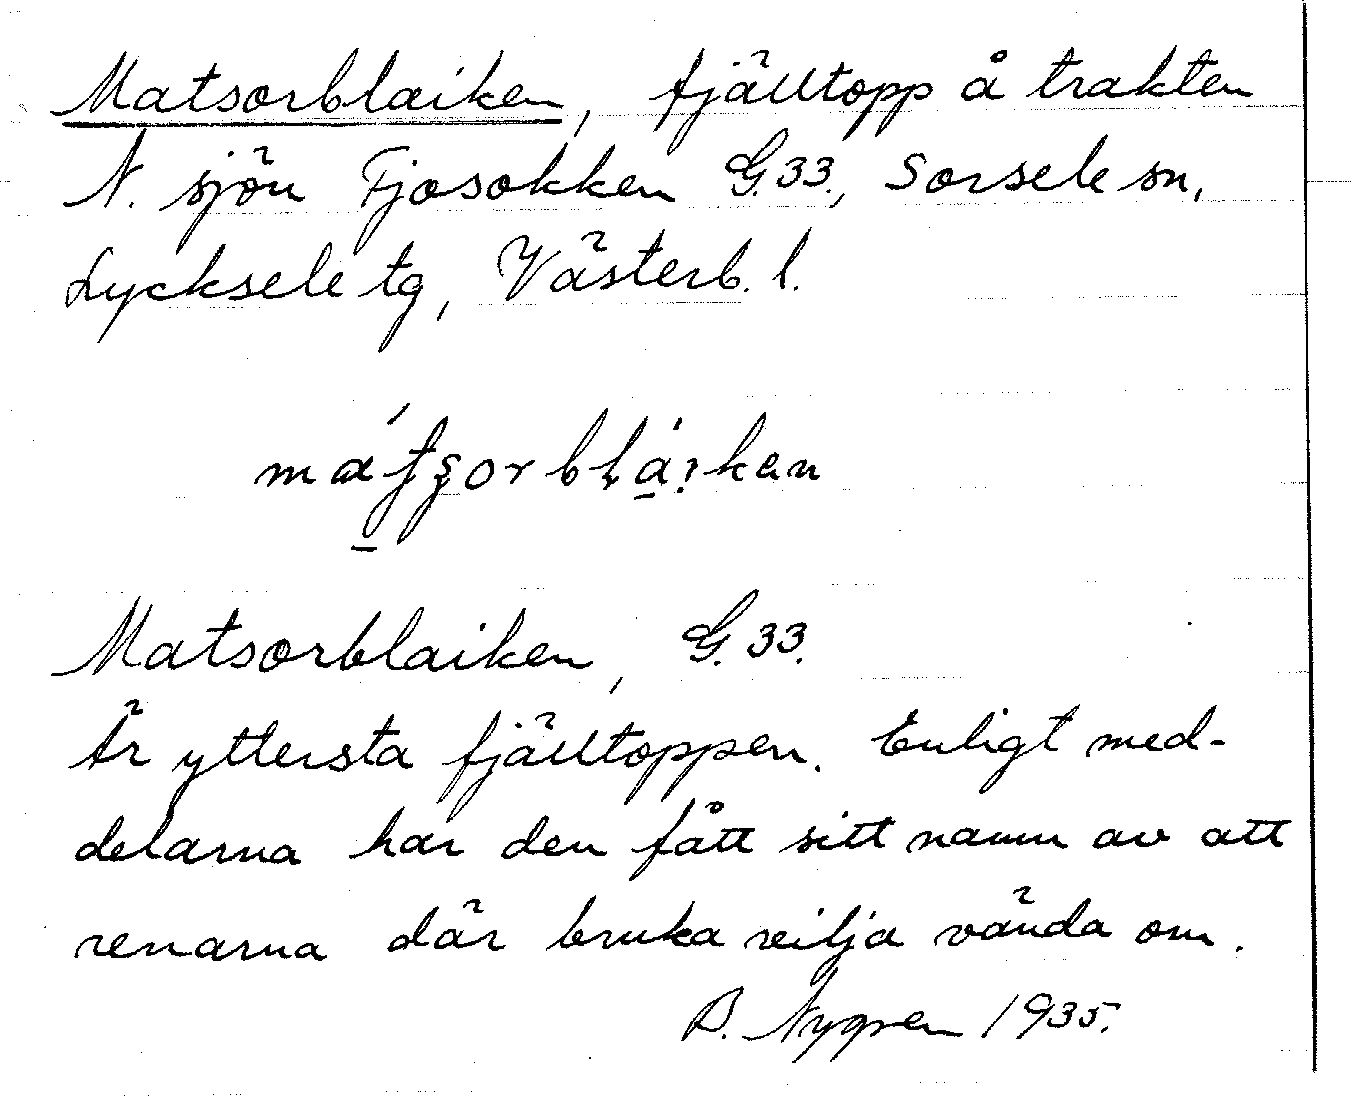 Matsorblaiken, fjälltopp å trakten
N. sjön Fjosokken G.33., Sorsele sn,
Lycksele tg, Västerb. l.
Matsorblaiken, G.33.
Är yttersta fjälltoppen. Enligt med-
delarna har den fått sitt namn av att
renarna där bruka vilja vända om.
B. Nygren 1935.